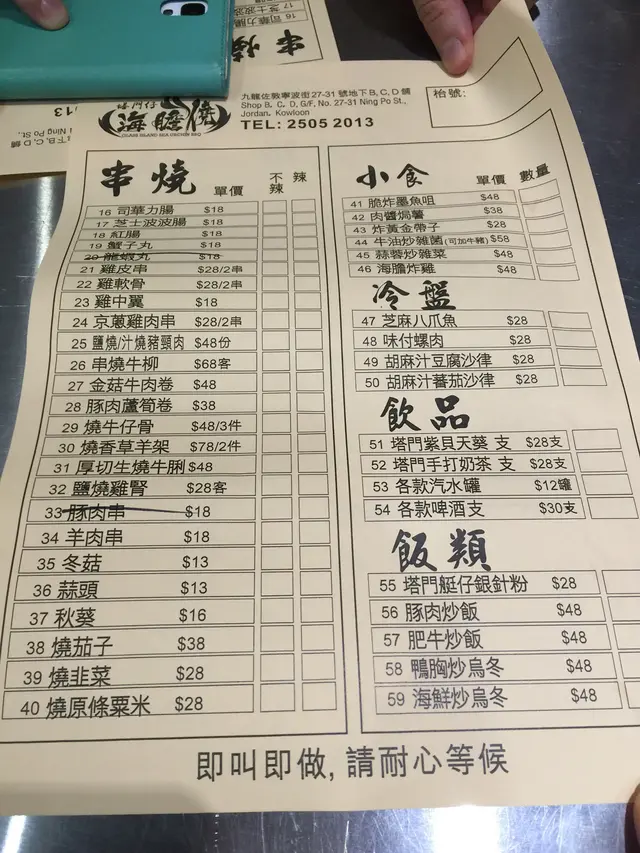 16 司華力腸
17 芝士波波
串燒
海膽燒
GRASS ISLAND SEA URCHIN BBQ
九龍佐敦寧波街27-31 號地下B, C, D 舖
Shop B, C, D, G/F, No. 27-31 Ning Po St.,
Jordan, Kowloon
TEL: 2505 2013
枱號:
串燒 單價 不辣 辣
16 司華力腸 $18
17 芝士波波腸 $18
18 紅腸 $18
19 蟹子丸 $18
20 龍蝦丸 $18
21 雞皮串 $28/2串
22 雞軟骨 $28/2串
23 雞中翼 $18
24 京蔥雞肉串 $28/2串
25 鹽燒/汁燒豬頸肉 $48份
26 串燒牛柳 $68客
27 金菇牛肉卷 $48
28 豚肉蘆筍卷 $38
29 燒牛仔骨 $48/3件
30 燒香草羊架 $78/2件
31 厚切生燒牛脷 $48
32 鹽燒雞腎 $28客
33 豚肉串 $18
34 羊肉串 $18
35 冬菇 $13
36 蒜頭 $13
37 秋葵 $16
38 燒茄子 $38
39 燒韭菜 $28
40 燒原條粟米 $28
小食 單價 數量
41 脆炸墨魚咀 $48
42 肉醬焗薯 $38
43 炸黃金帶子 $28
44 牛油炒雜菌(可加牛鰽) $58
45 蒜蓉炒雜菜 $48
46 海膽炸雞 $48
冷盤
47 芝麻八爪魚 $28
48 味付螺肉 $28
49 胡麻汁豆腐沙律 $28
50 胡麻汁蕃茄沙律 $28
飲品
51 塔門紫貝天葵 支 $28支
52 塔門手打奶茶 支 $28支
53 各款汽水罐 $12罐
54 各款啤酒支 $30支
飯類
55 塔門艇仔銀針粉 $28
56 豚肉炒飯 $48
57 肥牛炒飯 $48
58 鴨胸炒烏冬 $48
59 海鮮炒烏冬 $48
即叫即做, 請耐心等候